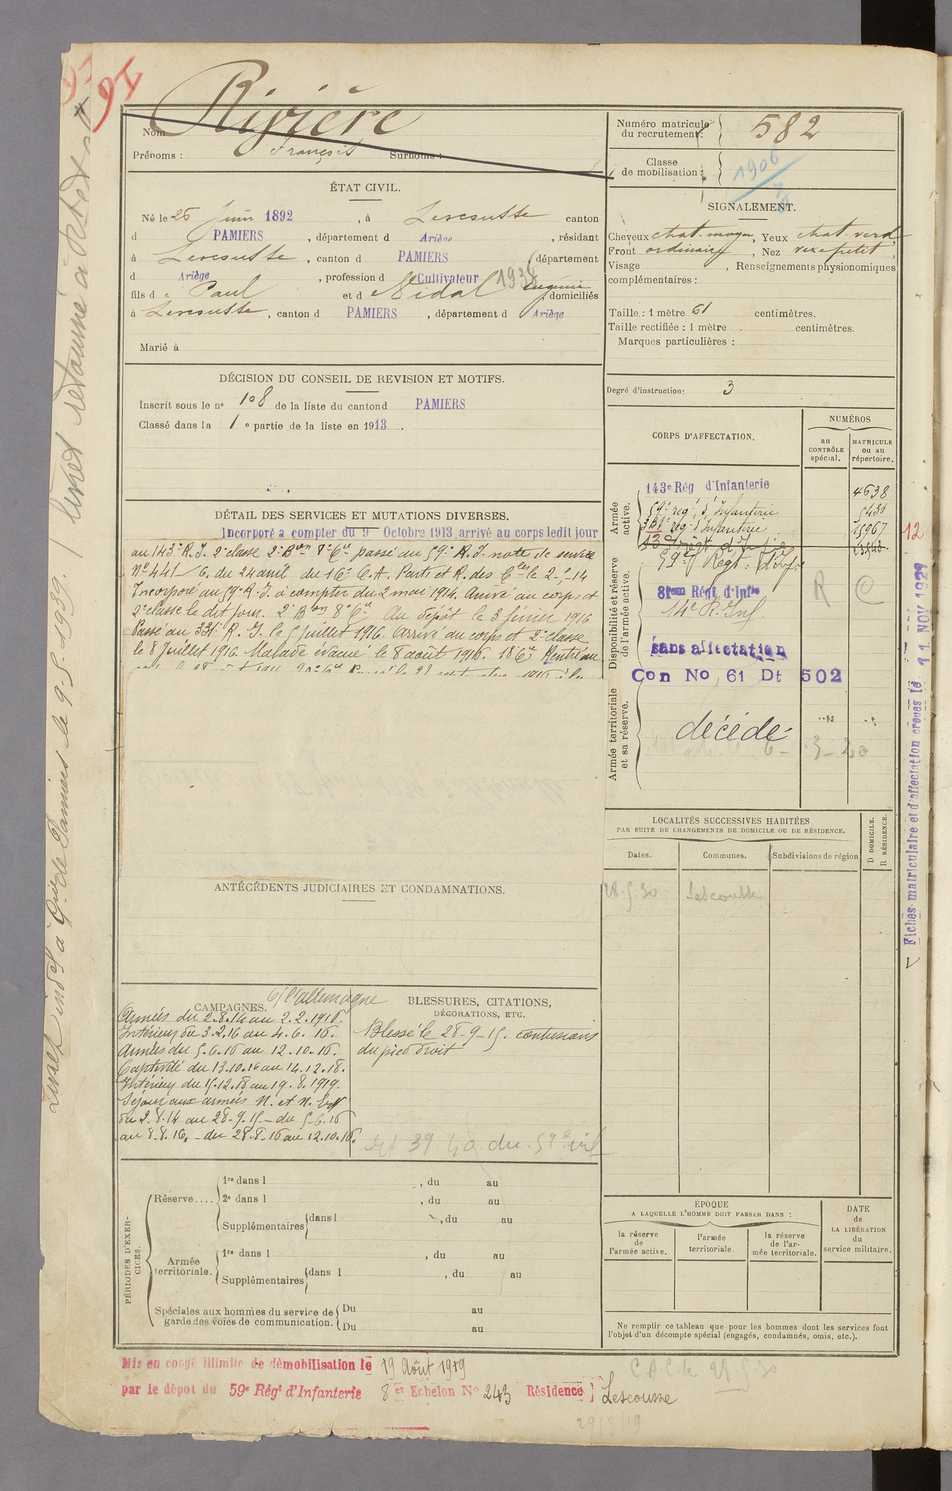 91
Nom Rivière
Prénoms : François Surnoms :
ÉTAT CIVIL.
Né le 25 Juin 1892, à Lescousse canton
d PAMIERS, département d Ariège, résidant
à Lescousse, canton d PAMIERS département
d Ariège, profession d Cultivateur
fils d e Paul et d e Vidal Eugénie domiciliés
à Lescousse, canton d PAMIERS, département d Ariège
Marié à
DÉCISION DU CONSEIL DE REVISION ET MOTIFS.
Inscrit sous le nº 108 de la liste du canton d PAMIERS
Classé dans la 1 e partie de la liste en 1913.
DÉTAIL DES SERVICES ET MUTATIONS DIVERSES.
Incorporé a compter du 9 Octobre 1913 arrivé au corps ledit jour
au 143e R.I. 2e classe 2e Bon 8e Cie passé au 59e R.I. note de service
Nº 441/6 du 24 avril du 16e C.A. Parti et R. des Cles le 2-5-14
Incorporé au 59e R.I. à compter du 2 mai 1914. Arrivé au corps et
2e classe le dit jour. 2e Bon 8e Cie Au dépôt le 3 février 1916
Passé au 331e R.I. le 5 juillet 1916. Arrivé au corps et 2e classe
le 8 juillet 1916. Malade évacué le 8 août 1916. 18e Cie Rentré au
ANTÉCÉDENTS JUDICIAIRES ET CONDAMNATIONS.
CAMPAGNES. C/ l'allemagne
Armées du 2.8.14 au 2.2.1916.
Intérieur du 3.2.16 au 4.6.16.
Armées du 5.6.16 au 12.10.16.
Captivité du 13.10.16 au 14.12.18.
Intérieur du 15.12.18 au 19.8.1919.
Séjour aux armées N. et N. Est
du 2.8.14 au 28.9.15 – du 5.6.16
au 8.8.16, – du 28.8.16 au 12.10.16.
BLESSURES, CITATIONS,
DÉCORATIONS, ETC.
Blessé le 28-9-15. contusions
du pied droit
PÉRIODES D'EXERCICES.
Réserve....
1re dans l , du au
2e dans l , du au
Supplémentaires dans l , du au
Armée territoriale.
1re dans l , du au
Supplémentaires dans l , du au
Spéciales aux hommes du service de garde des voies de communication.
Du au
Du au
Mis en congé illimité de démobilisation le 19 Août 1919
par le dépot du 59e Régt d'Infanterie 8 er Echelon Nº 243 Résidence Lescousse
Numéro matricule du recrutement : 582
Classe de mobilisation : 1906
SIGNALEMENT.
Cheveux chat. moyen, Yeux chat. verd
Front ordinaire, Nez petit
Visage , Renseignements physionomiques
complémentaires :
Taille : 1 mètre 61 centimètres.
Taille rectifiée : 1 mètre centimètres.
Marques particulières :
Degré d'instruction : 3
CORPS D'AFFECTATION.
NUMÉROS
au CONTRÔLE spécial.
MATRICULE ou au répertoire.
Armée active.
143e Rég d'Infanterie 4638
59e reg. d'Infanterie 5431
331e reg. d'Infanterie 15067
Disponibilité et réserve de l'armée active.
59e Régt. d'Inf
81eme Régt d'Infie R C
14e R. Inf
sans affectation
Con No 61 Dt 502
Armée territoriale et sa réserve.
décédé
6-3-30
LOCALITÉS SUCCESSIVES HABITÉES
PAR SUITE DE CHANGEMENTS DE DOMICILE OU DE RÉSIDENCE.
Dates. Communes. Subdivisions de région D DOMICILE. R RÉSIDENCE.
28.5.30 Lescousse
ÉPOQUE
A LAQUELLE L'HOMME DOIT PASSER DANS :
la réserve de l'armée active.
l'armée territoriale.
la réserve de l'armée territoriale.
DATE de LA LIBÉRATION du service militaire.
Ne remplir ce tableau que pour les hommes dont les services font
l'objet d'un décompte spécial (engagés, condamnés, omis, etc.).
12
Fiches matriculaire et d'affectation créées le 11 NOV 1929